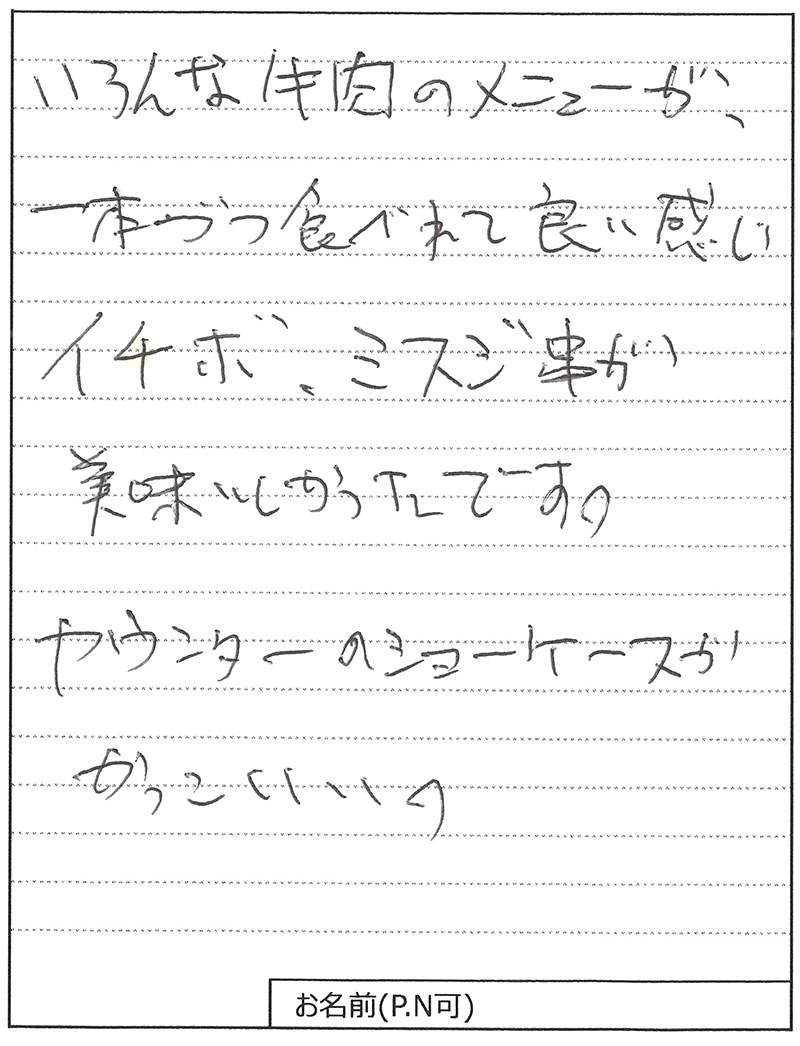 いろんな牛肉のメニューが、
一本づつ食べれて良い感じ
イチボ、ミスジ串が
美味いしかったでです。
カウンターのショーケースが
かっこいいい。
お名前(P.N可)